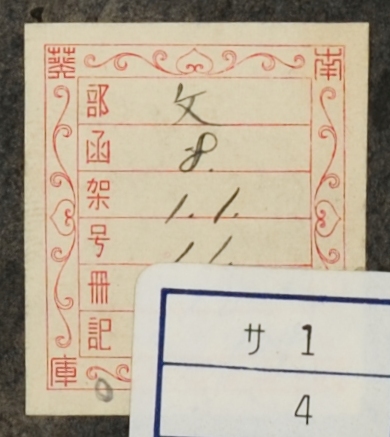 南葵
部 文
函 8.
架 1.1.
号 11.
冊
記
庫
0
サ 1
4